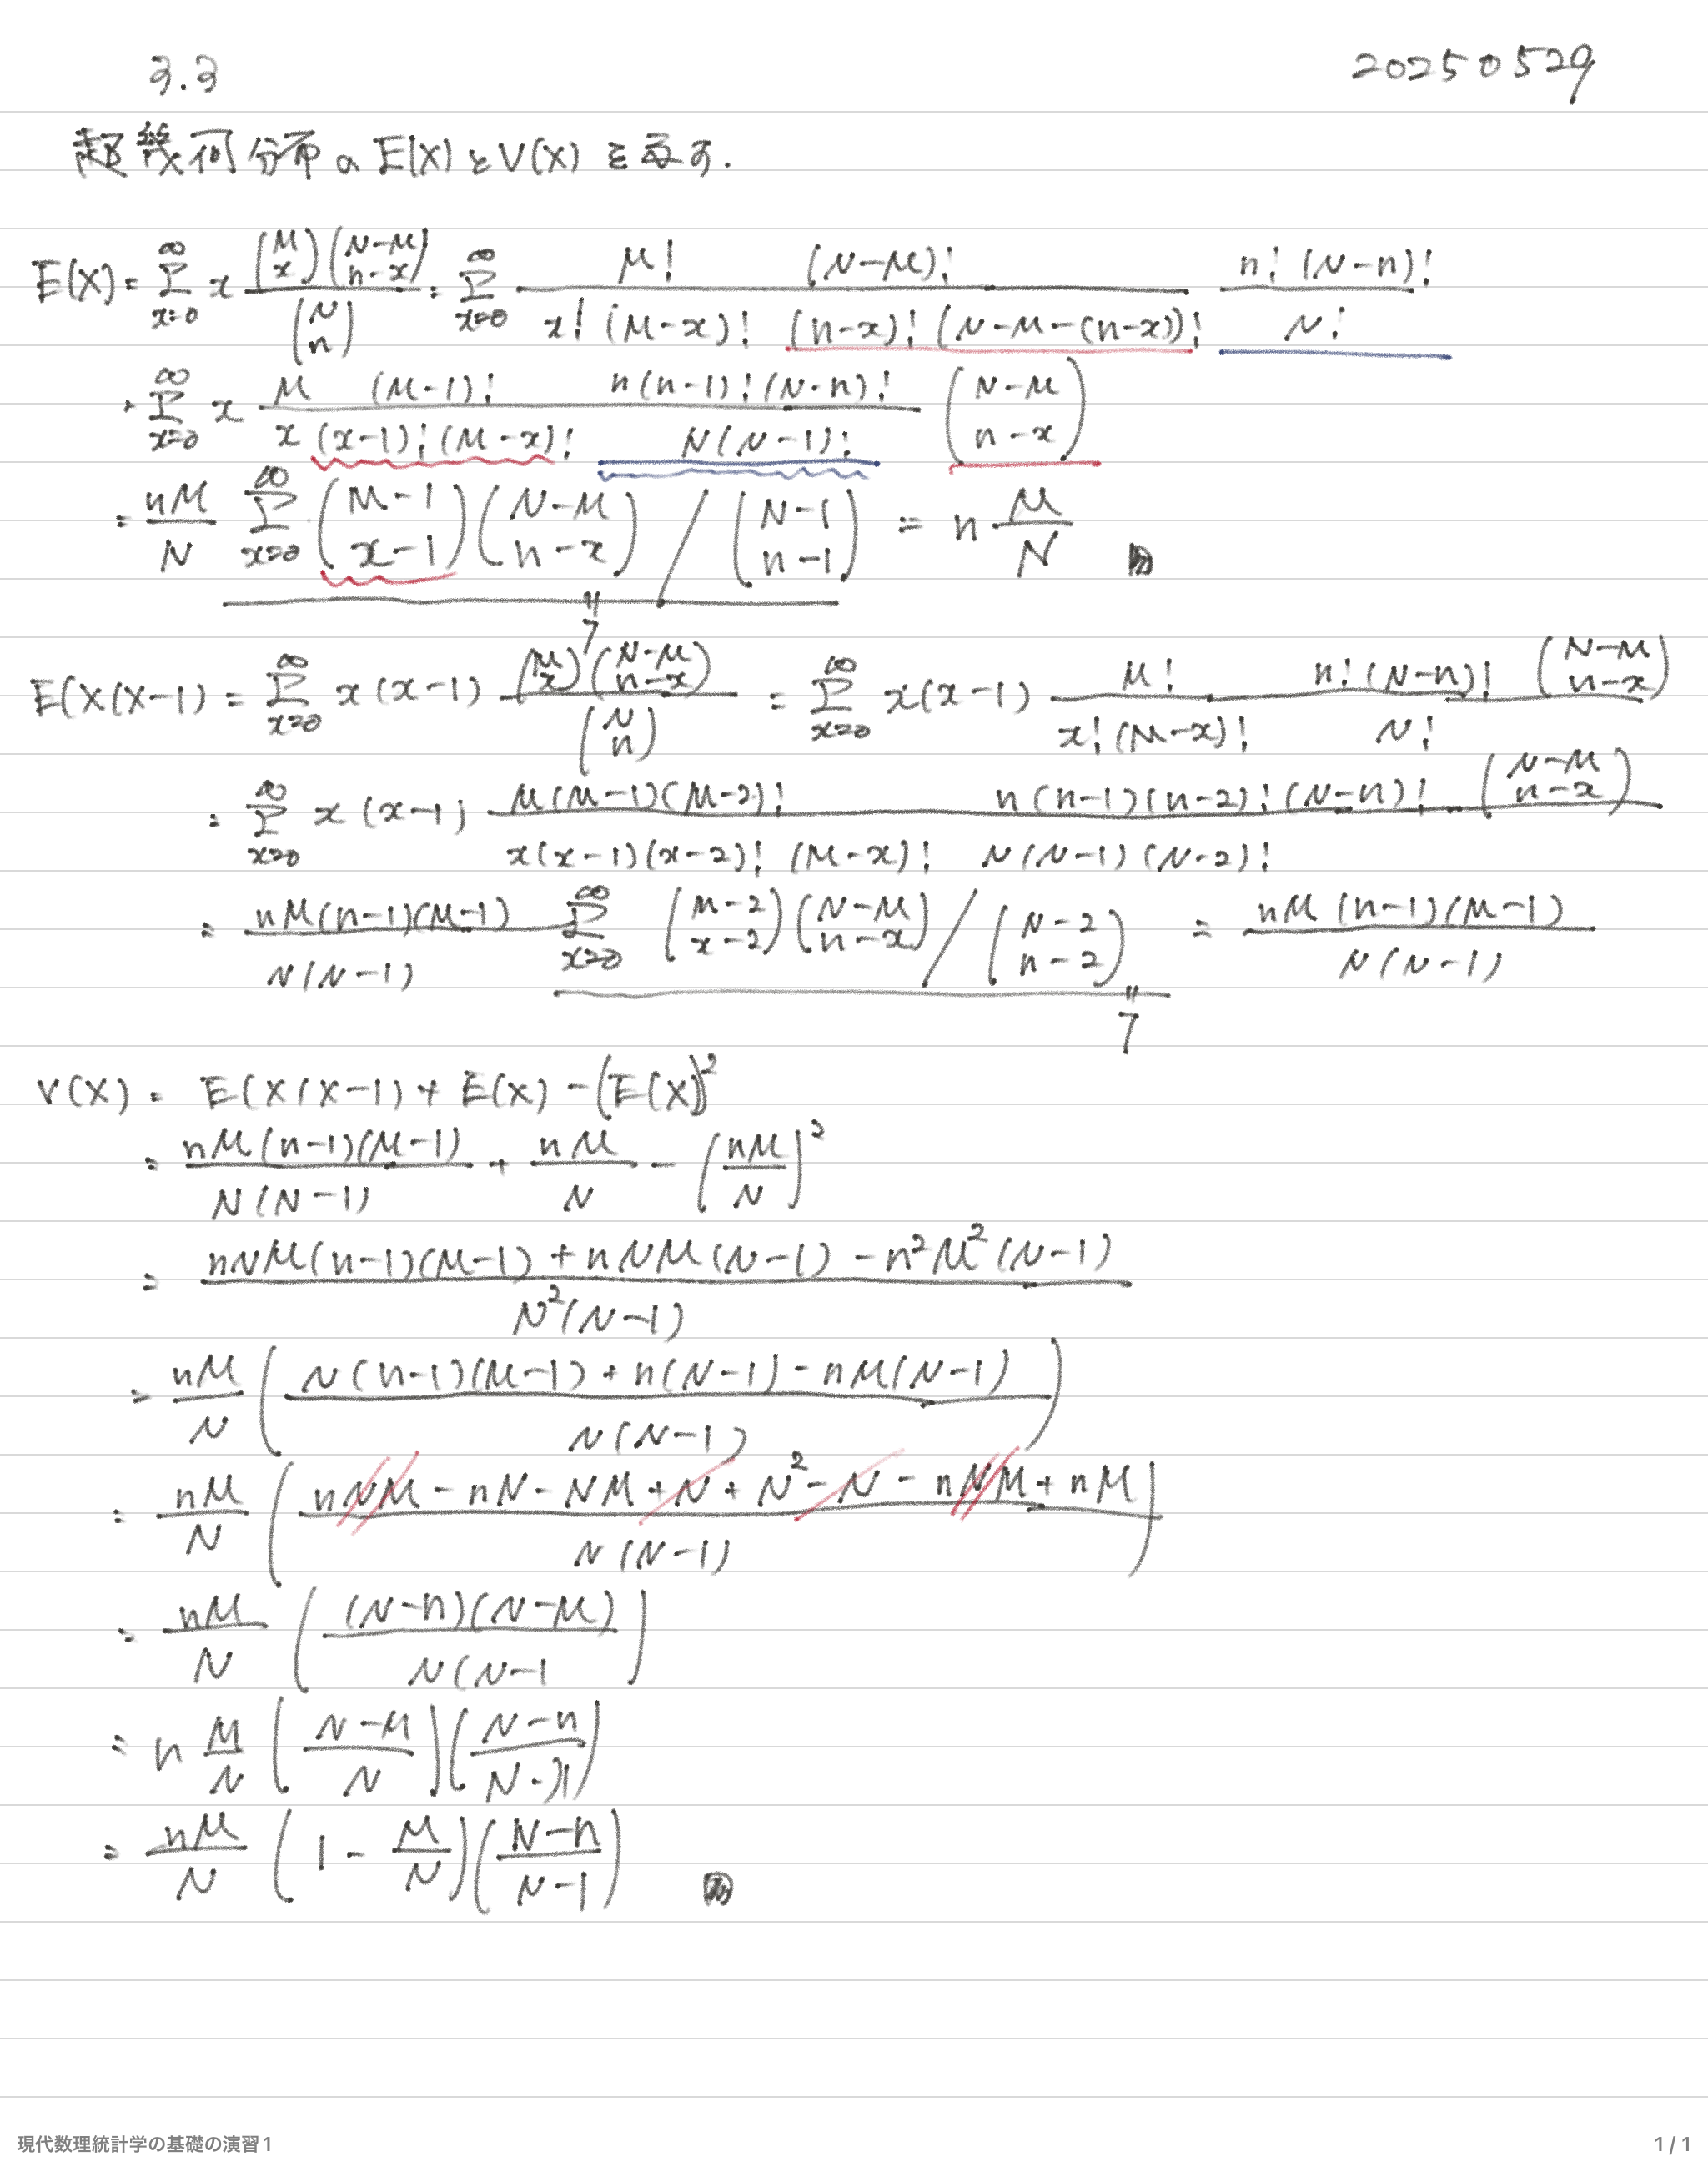 3.3
20250529
超幾何分布の E(X) と V(X) を示す.
E(X) = Σ_{x=0}^{∞} x \frac{\binom{M}{x}\binom{N-M}{n-x}}{\binom{N}{n}} = Σ_{x=0}^{∞} \frac{M! (N-M)!}{x! (M-x)! (n-x)! (N-M-(n-x))!} \frac{n! (N-n)!}{N!}
= Σ_{x=0}^{∞} x \frac{M (M-1)! n(n-1)! (N-n)!}{x (x-1)! (M-x)! N(N-1)!} \binom{N-M}{n-x}
= \frac{nM}{N} Σ_{x=0}^{∞} \binom{M-1}{x-1} \binom{N-M}{n-x} / \binom{N-1}{n-1} = n \frac{M}{N}
" 1
E(X(X-1) = Σ_{x=0}^{∞} x(x-1) \frac{\binom{M}{x}\binom{N-M}{n-x}}{\binom{N}{n}} = Σ_{x=0}^{∞} x(x-1) \frac{M! n! (N-n)! \binom{N-M}{n-x}}{x! (M-x)! N!}
= Σ_{x=0}^{∞} x(x-1) \frac{M(M-1)(M-2)! n(n-1)(n-2)! (N-n)! \binom{N-M}{n-x}}{x(x-1)(x-2)! (M-x)! N(N-1)(N-2)!}
= \frac{nM(n-1)(M-1)}{N(N-1)} Σ_{x=0}^{∞} \binom{M-2}{x-2} \binom{N-M}{n-x} / \binom{N-2}{n-2} = \frac{nM(n-1)(M-1)}{N(N-1)}
" 1
V(X) = E(X(X-1) + E(X) - (E(X))^2
= \frac{nM(n-1)(M-1)}{N(N-1)} + \frac{nM}{N} - (\frac{nM}{N})^2
= \frac{nNM(n-1)(M-1) + nNM(N-1) - n^2M^2(N-1)}{N^2(N-1)}
= \frac{nM}{N} ( \frac{N(n-1)(M-1) + n(N-1) - nM(N-1)}{N(N-1)} )
= \frac{nM}{N} ( \frac{nNM - nN - NM + N + N^2 - N - nNM + nM}{N(N-1)} )
= \frac{nM}{N} ( \frac{(N-n)(N-M)}{N(N-1} )
= n \frac{M}{N} ( \frac{N-M}{N} ) ( \frac{N-n}{N-1)} )
= \frac{nM}{N} ( 1 - \frac{M}{N} ) ( \frac{N-n}{N-1} )
現代数理統計学の基礎の演習1
1 / 1